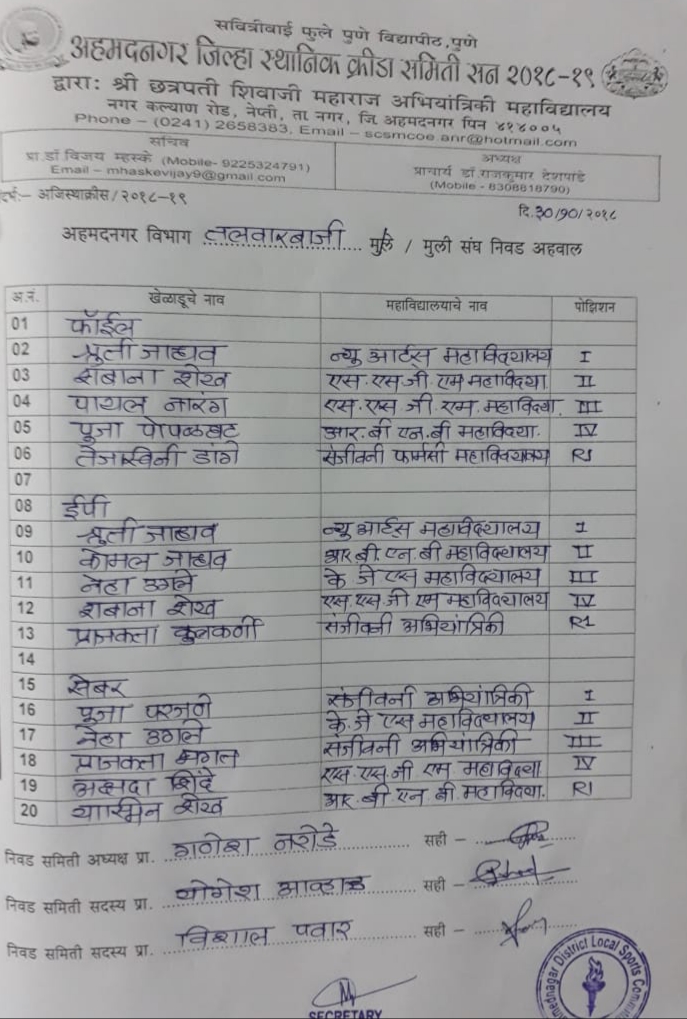 सवित्रीबाई फुले पुणे विद्यापीठ,पुणे
अहमदनगर जिल्हा स्थानिक क्रीडा समिती सन २०१८-१९
द्वारा: श्री छत्रपती शिवाजी महाराज अभियांत्रिकी महाविद्यालय
नगर कल्याण रोड, नेप्ती, ता. नगर, जि अहमदनगर पिन ४१४००५
Phone – (0241) 2658383, Email – scsmcoe.anr@hotmail.com
सचिव
प्रा.डॉ विजय म्हस्के (Mobile- 9225324791)
Email – mhaskevijay9@gmail.com
अध्यक्ष
प्राचार्य डॉ.राजकुमार देशपांडे
(Mobile - 8308818790)
अजिस्थाक्रीस/२०१८-१९
दि.३०/१०/२०१८
अहमदनगर विभाग तलवारबाजी मुले / मुली संघ निवड अहवाल
अ.नं. खेळाडूचे नाव महाविद्यालयाचे नाव पोझिशन
01 फॉईल
02 श्रुती जाधव न्यू आर्टस् महाविद्यालय I
03 शबाना शेख एस.एस.जी.एम महाविद्या. II
04 पायल नारंग एस.एस.जी.एम.महाविद्या. III
05 पूजा पोपळघट आर.बी एन.बी महाविद्या. IV
06 तेजस्विनी डांगे संजीवनी फार्मसी महाविद्यालय R1
07
08 ईपी
09 श्रुती जाधव न्यू आर्टस् महाविद्यालय I
10 कोमल जाधव आर बी एन बी महाविद्यालय II
11 नेहा उगले के जे एस महाविद्यालय III
12 शबाना शेख एस एस जी एम महाविद्यालय IV
13 प्राजक्ता कुलकर्णी संजीवनी अभियांत्रिकी R1
14
15 सेबर
16 पूजा परजणे संजीवनी अभियांत्रिकी I
17 नेहा उगले के.जे एस महाविद्यालय II
18 प्राजक्ता भगत संजीवनी अभियांत्रिकी III
19 अक्षदा शिंदे एस.एस.जी एम महाविद्या. IV
20 यास्मिन शेख आर.बी एन बी.महाविद्या. R1
निवड समिती अध्यक्ष प्रा. गणेश नरोडे सही –
निवड समिती सदस्य प्रा. योगेश आव्हाड सही –
निवड समिती सदस्य प्रा. विशाल पवार सही –
SECRETARY
District Local Sports